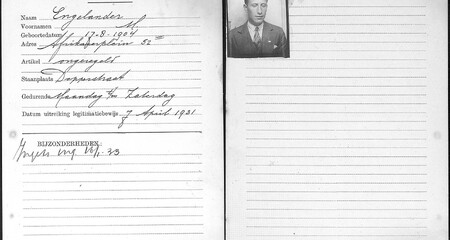 Naam Engelander
Voornamen M
Geboortedatum 17-8-1904
Adres Afrikanerplein 5 III
Artikel ongeregeld
Staanplaats Dapperstraat
Gedurende Maandag t/m Zaterdag
Datum uitreiking legitimatiebewijs 7 April 1931
BIJZONDERHEDEN: